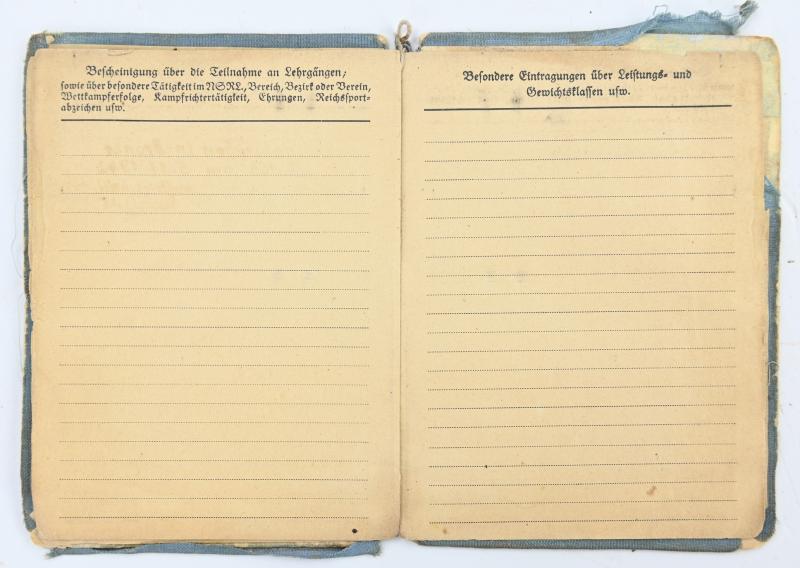 Bescheinigung über die Teilnahme an Lehrgängen;
sowie über besondere Tätigkeit im NSRL, Bereich, Bezirk oder Verein,
Wettkampferfolge, Kampfrichtertätigkeit, Ehrungen, Reichssport-
abzeichen usw.
Besondere Eintragungen über Leistungs- und
Gewichtsklassen usw.